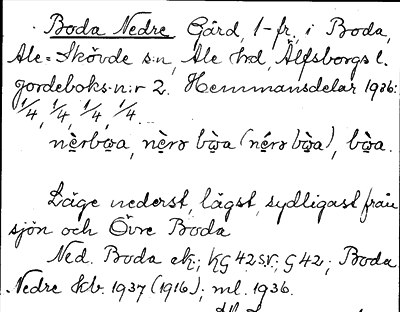 Boda Nedre Gård, 1-fr. i Boda,
Ale-Skövde s:n, Ale hd, Älfsborgs l.
Jordeboks-n:r 2. Hemmansdelar 1936:
1/4, 1/4, 1/4, 1/4.
nèrbωa, nèrə bωa (nérə bωa), bωa.
Läge nederst, lägst, sydligast från
sjön och Övre Boda
Ned. Boda ek.; KG 42 SV; G 42; Boda
Nedre kb. 1937 (1916); ml. 1936.